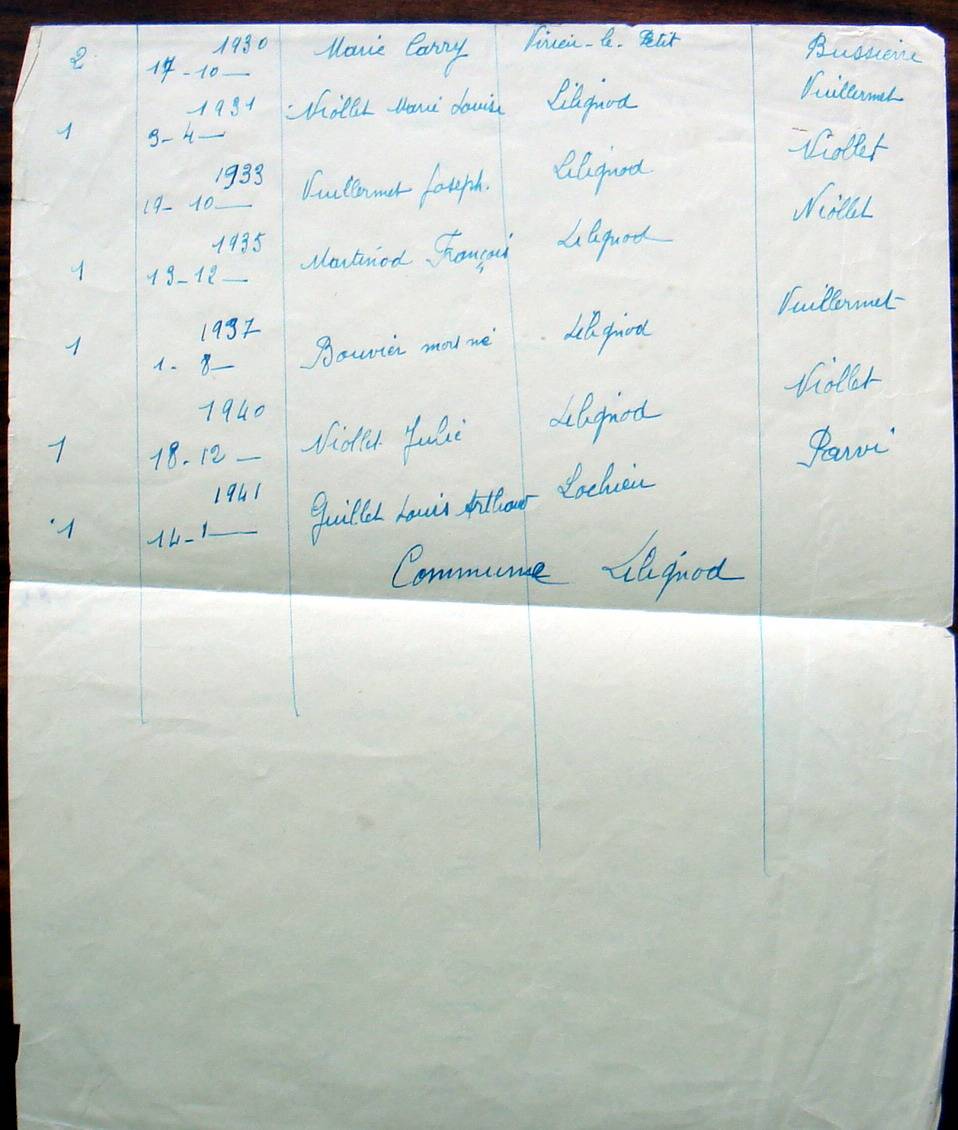 2 1930 Marie Carry Virieu-le-Petit Bussierre
17-10-
1931 Niollet Marie Louise Lilignod Vuillermet
1 3-4-
1933 Vuillermet Joseph. Lilignod Niollet
19-10-
1935 Martinod François Lilignod Niollet
1 13-12-
1937 Bouvier mort né Lilignod Vuillermet
1 1-8-
1940 Niollet Julie Lilignod Niollet
1 18-12-
1941 Guillet Louis Lochieu Parvi
1 14-1-
Commune Lilignod